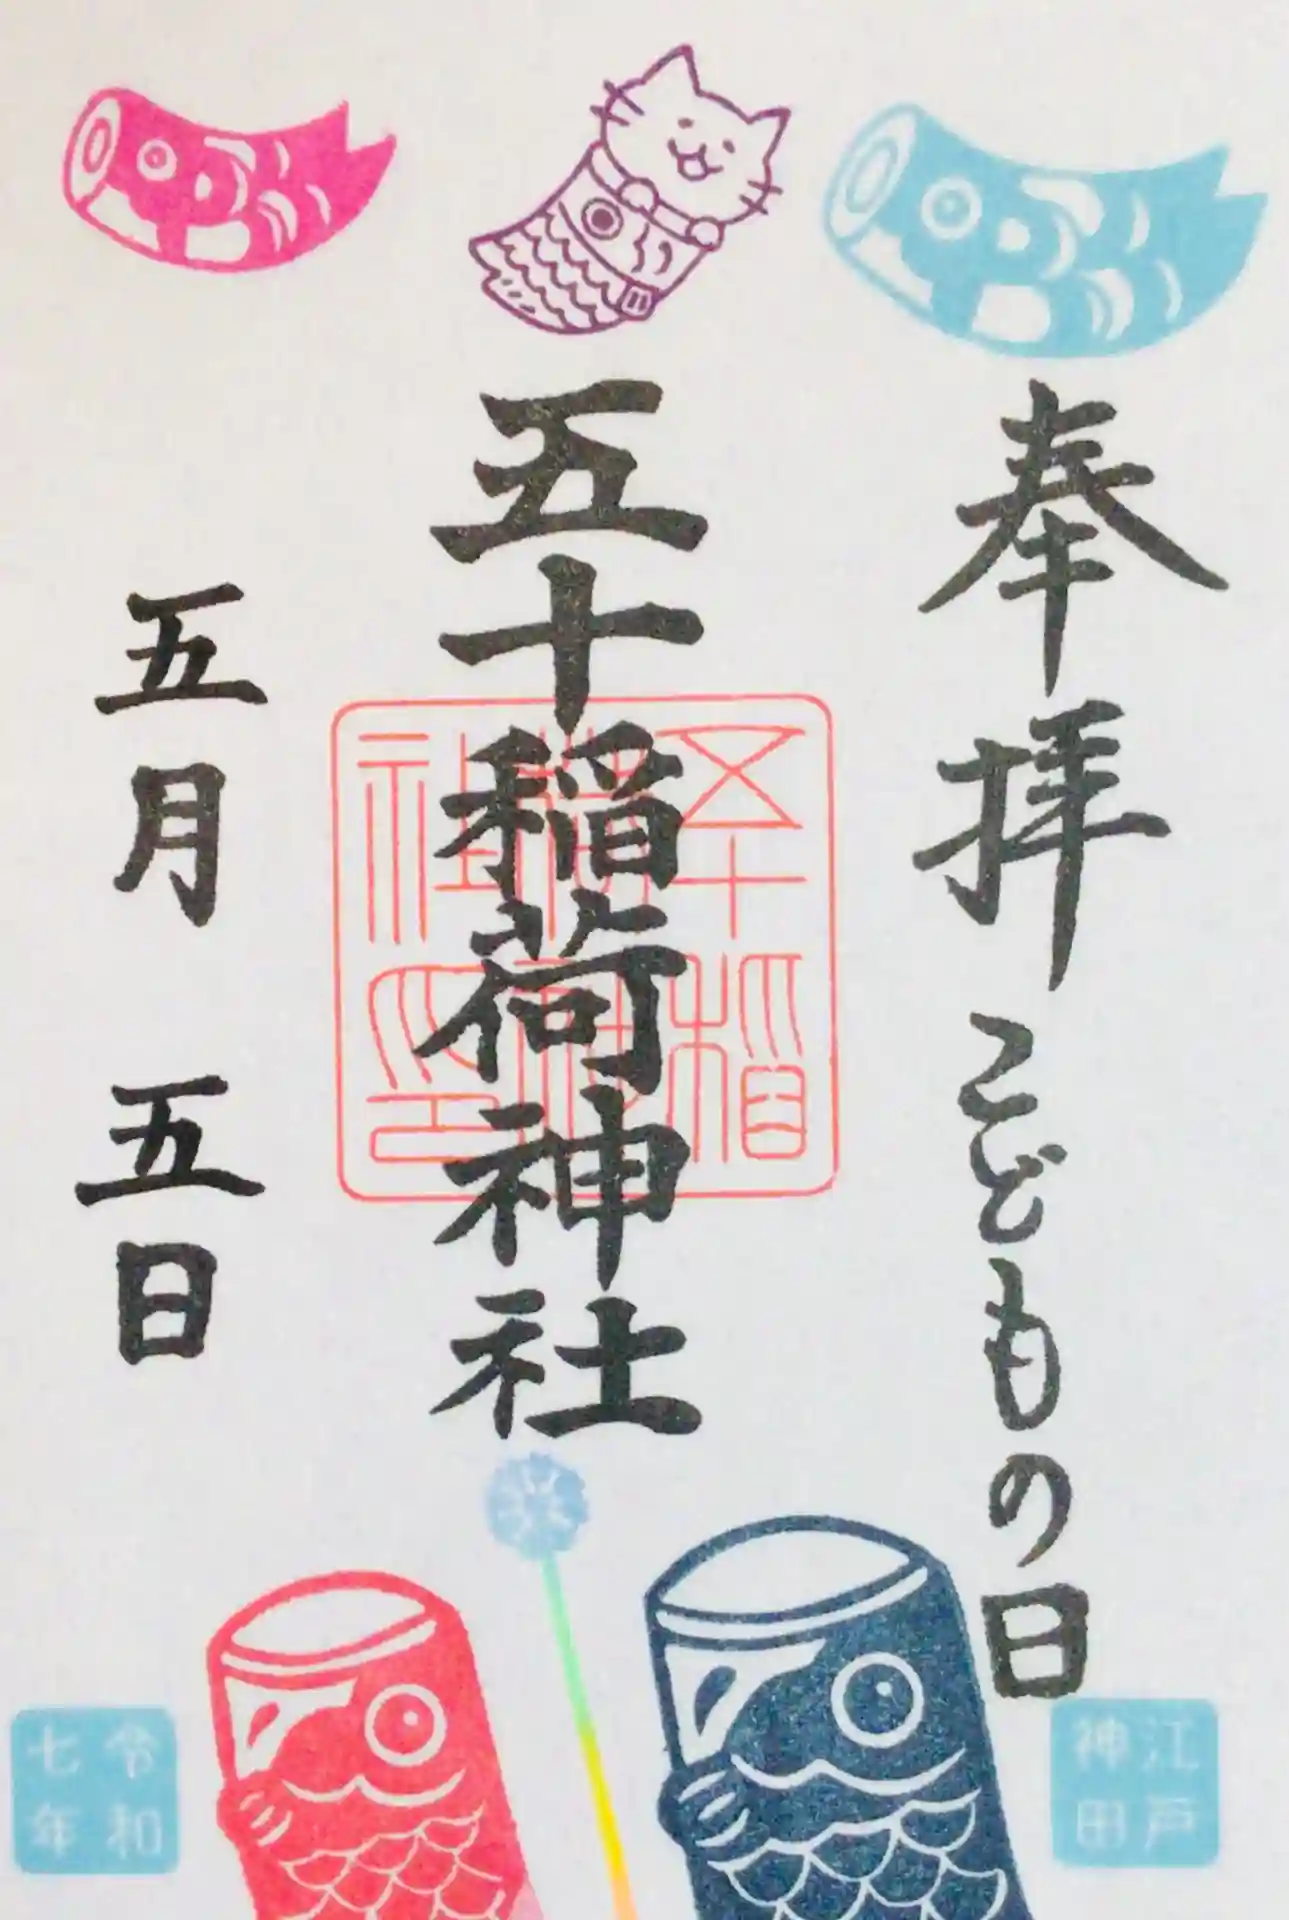 奉拝 こどもの日
江戸
神田
五十稲荷神社
五十稲
荷神
社印
五月 五日
令和
七年